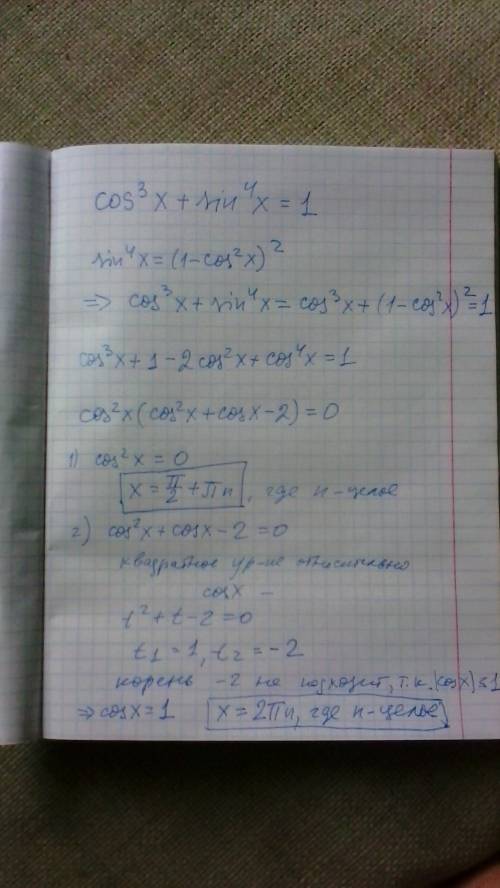 cos³x + sin⁴x = 1
sin⁴x = (1-cos²x)²
=> cos³x + sin⁴x = cos³x + (1-cos²x)² = 1
cos³x + 1 - 2cos²x + cos⁴x = 1
cos²x(cos²x + cosx - 2) = 0
1) cos²x = 0
x = π/2 + πn, где n-целое
2) cos²x + cosx - 2 = 0
квадратное ур-ие относительно
cosx —
t² + t - 2 = 0
t₁ = 1, t₂ = -2
корень -2 не подходит, т.к. |cosx| ≤ 1
=> cosx = 1 x = 2πn, где n-целое